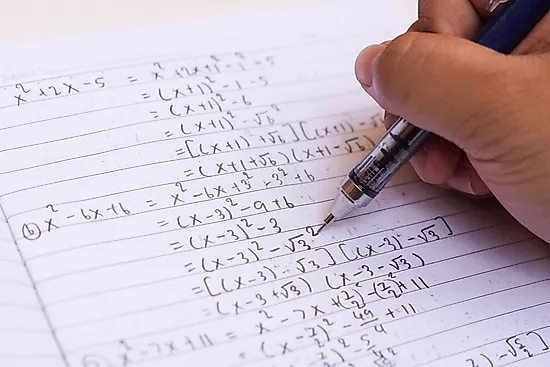 x² + 2x - 5 = x² + 2x + 1² - 1 - 5
= (x+1)² - 1 - 5
= (x+1)² - 6
= (x+1)² - √6²
= [(x+1) + √6] [(x+1) - √6]
= (x+1+√6) (x+1-√6)
(b) x² - 6x + 6 = x² - 6x + 3² - 3² + 6
= (x-3)² - 9 + 6
= (x-3)² - 3
= (x-3)² - √3²
= [(x-3) - √3] [(x-3) - √3]
= (x-3+√3) (x-3-√3)
x² - 7x + 11 = x² - 7x + (7/2)² - (7/2)² + 11
= (x - 7/2)² - 49/4 + 11